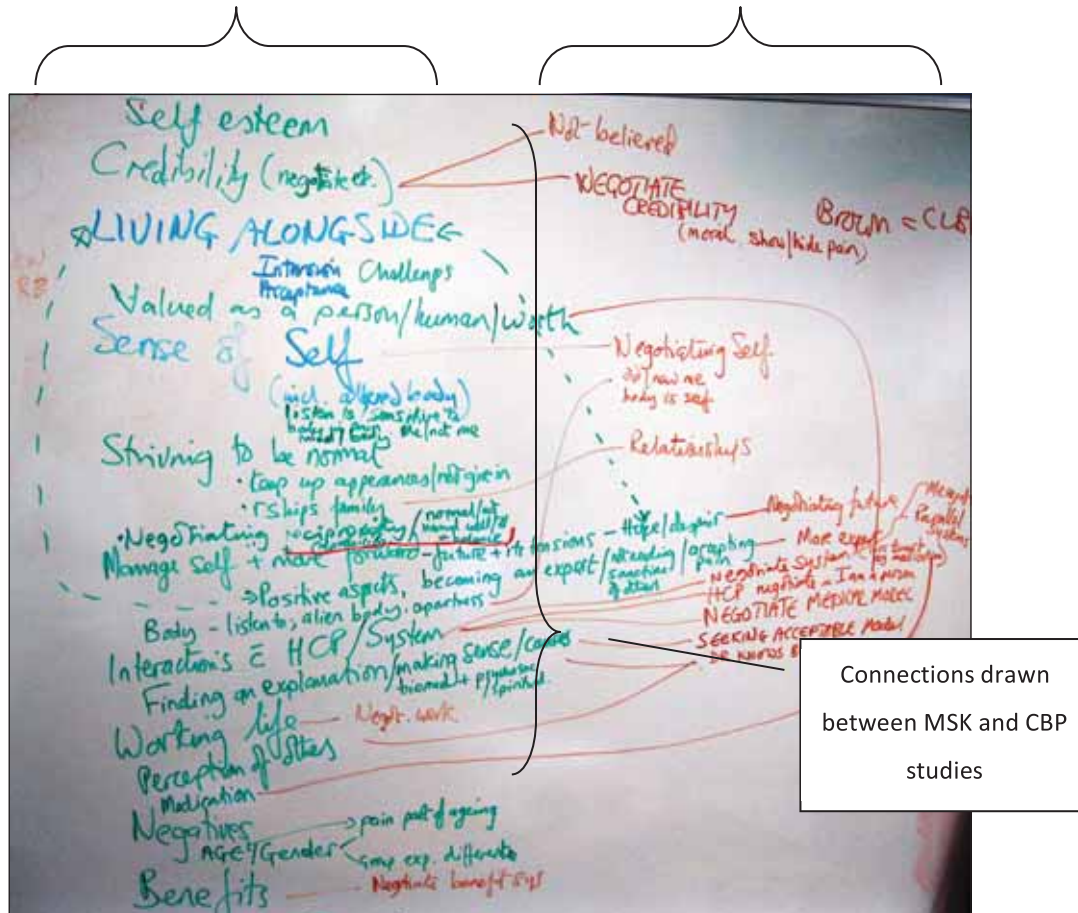 Self esteem
Credibility (negotiate etc.)
LIVING ALONGSIDE
Intrusion Challenges
Acceptance
Valued as a person/human/worth
Sense of Self
(incl. altered body)
listen to / sensitive to
me/not me
Striving to be normal
• keep up appearances/not give in
• r'ships family
• Negotiating reciprocity/
Manage self + move forward - future + its tensions - Hope/despair
→ Positive aspects, becoming an expert/
Body - listen to, alien body, apartness
Interactions c̄ HCP/System
Finding an explanation/making sense/
biomed + 
spiritual
Working life
Perception of others
Medication
Negatives
AGE/Gender
→ pain part of ageing
group exp. differently
Benefits
Not believed
NEGOTIATE
CREDIBILITY
(moral, show/hide pain)
BROWN = CLB
Negotiating Self.
old/new me
body is self
Relationships
Negotiating future
More expert
Negotiate System
HCP negotiate - I am a person
NEGOTIATE MEDICAL MODEL
SEEKING ACCEPTABLE MODEL
DR KNOWS B
Parallel
Systems
Negot. work
Negotiate benefit sys
Connections drawn
between MSK and CBP
studies